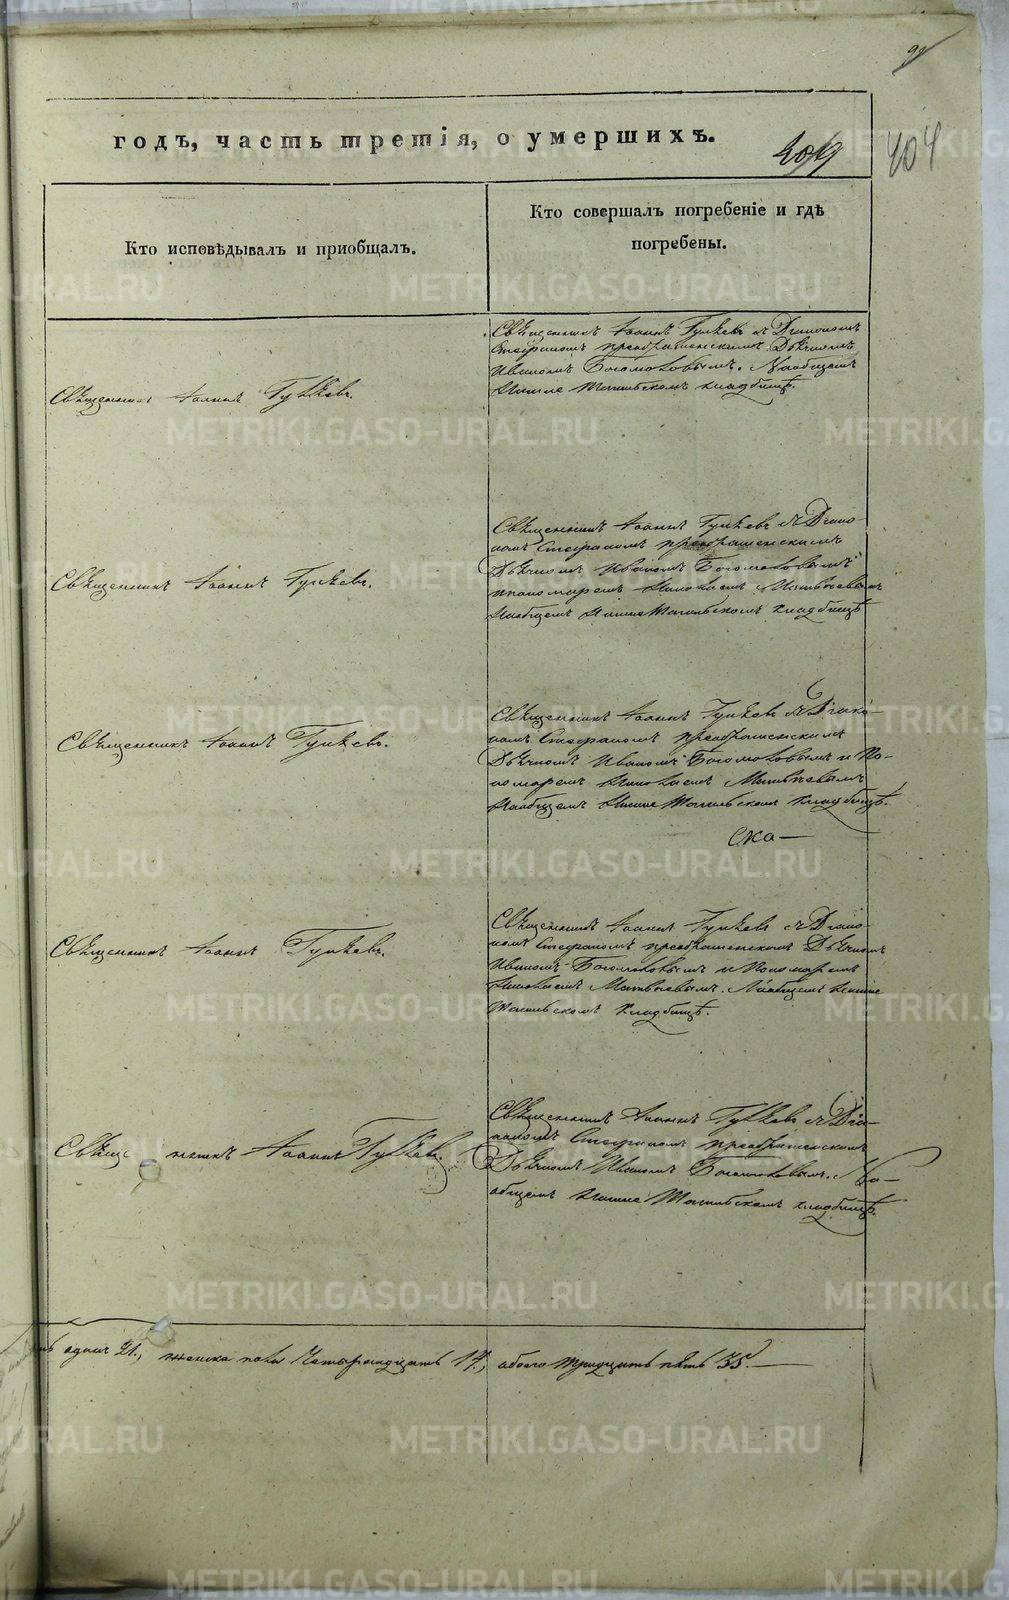 годъ, часть третія, о умершихъ.
209
404
Кто исповѣдывалъ и пріобщалъ.
Кто совершалъ погребеніе и гдѣ
погребены.
Священникъ Іоаннъ
Священникъ Іоаннъ съ Діакономъ
Стефаномъ Преображенскимъ Дьячкомъ
Иваномъ Богомоловымъ. На общемъ
Нижне Тагильскомъ кладбищѣ.
Священникъ Іоаннъ
Священникъ Іоаннъ съ Діако-
номъ Стефаномъ Преображенскимъ
Дьячкомъ Иваномъ Богомоловымъ
пономаремъ Николаемъ Матвѣевымъ
На общемъ Нижне Тагильскомъ кладбищѣ
Священникъ Іоаннъ
Священникъ Іоаннъ съ Діако-
номъ Стефаномъ Преображенскимъ
Дьячкомъ Иваномъ Богомоловымъ и По-
номаремъ Николаемъ Матвѣевымъ
На общемъ Нижне Тагильскомъ кладбищѣ.
Священникъ Іоаннъ
Священникъ Іоаннъ съ Діако-
номъ Стефаномъ Преображенскимъ Дьячкомъ
Иваномъ Богомоловымъ и Пономаремъ
Николаемъ Матвѣевымъ. На общемъ Нижне
Тагильскомъ кладбищѣ.
Свяще нникъ Іоаннъ
Священникъ Іоаннъ съ Діа-
кономъ Стефаномъ Преображенскимъ
Дьячкомъ Иваномъ Богомоловымъ. На
общемъ Нижне Тагильскомъ кладбищѣ.
одинъ 21., женска пола четырнадцать 14., обоего тридцать пять 35.
METRIKI.GASO-URAL.RU